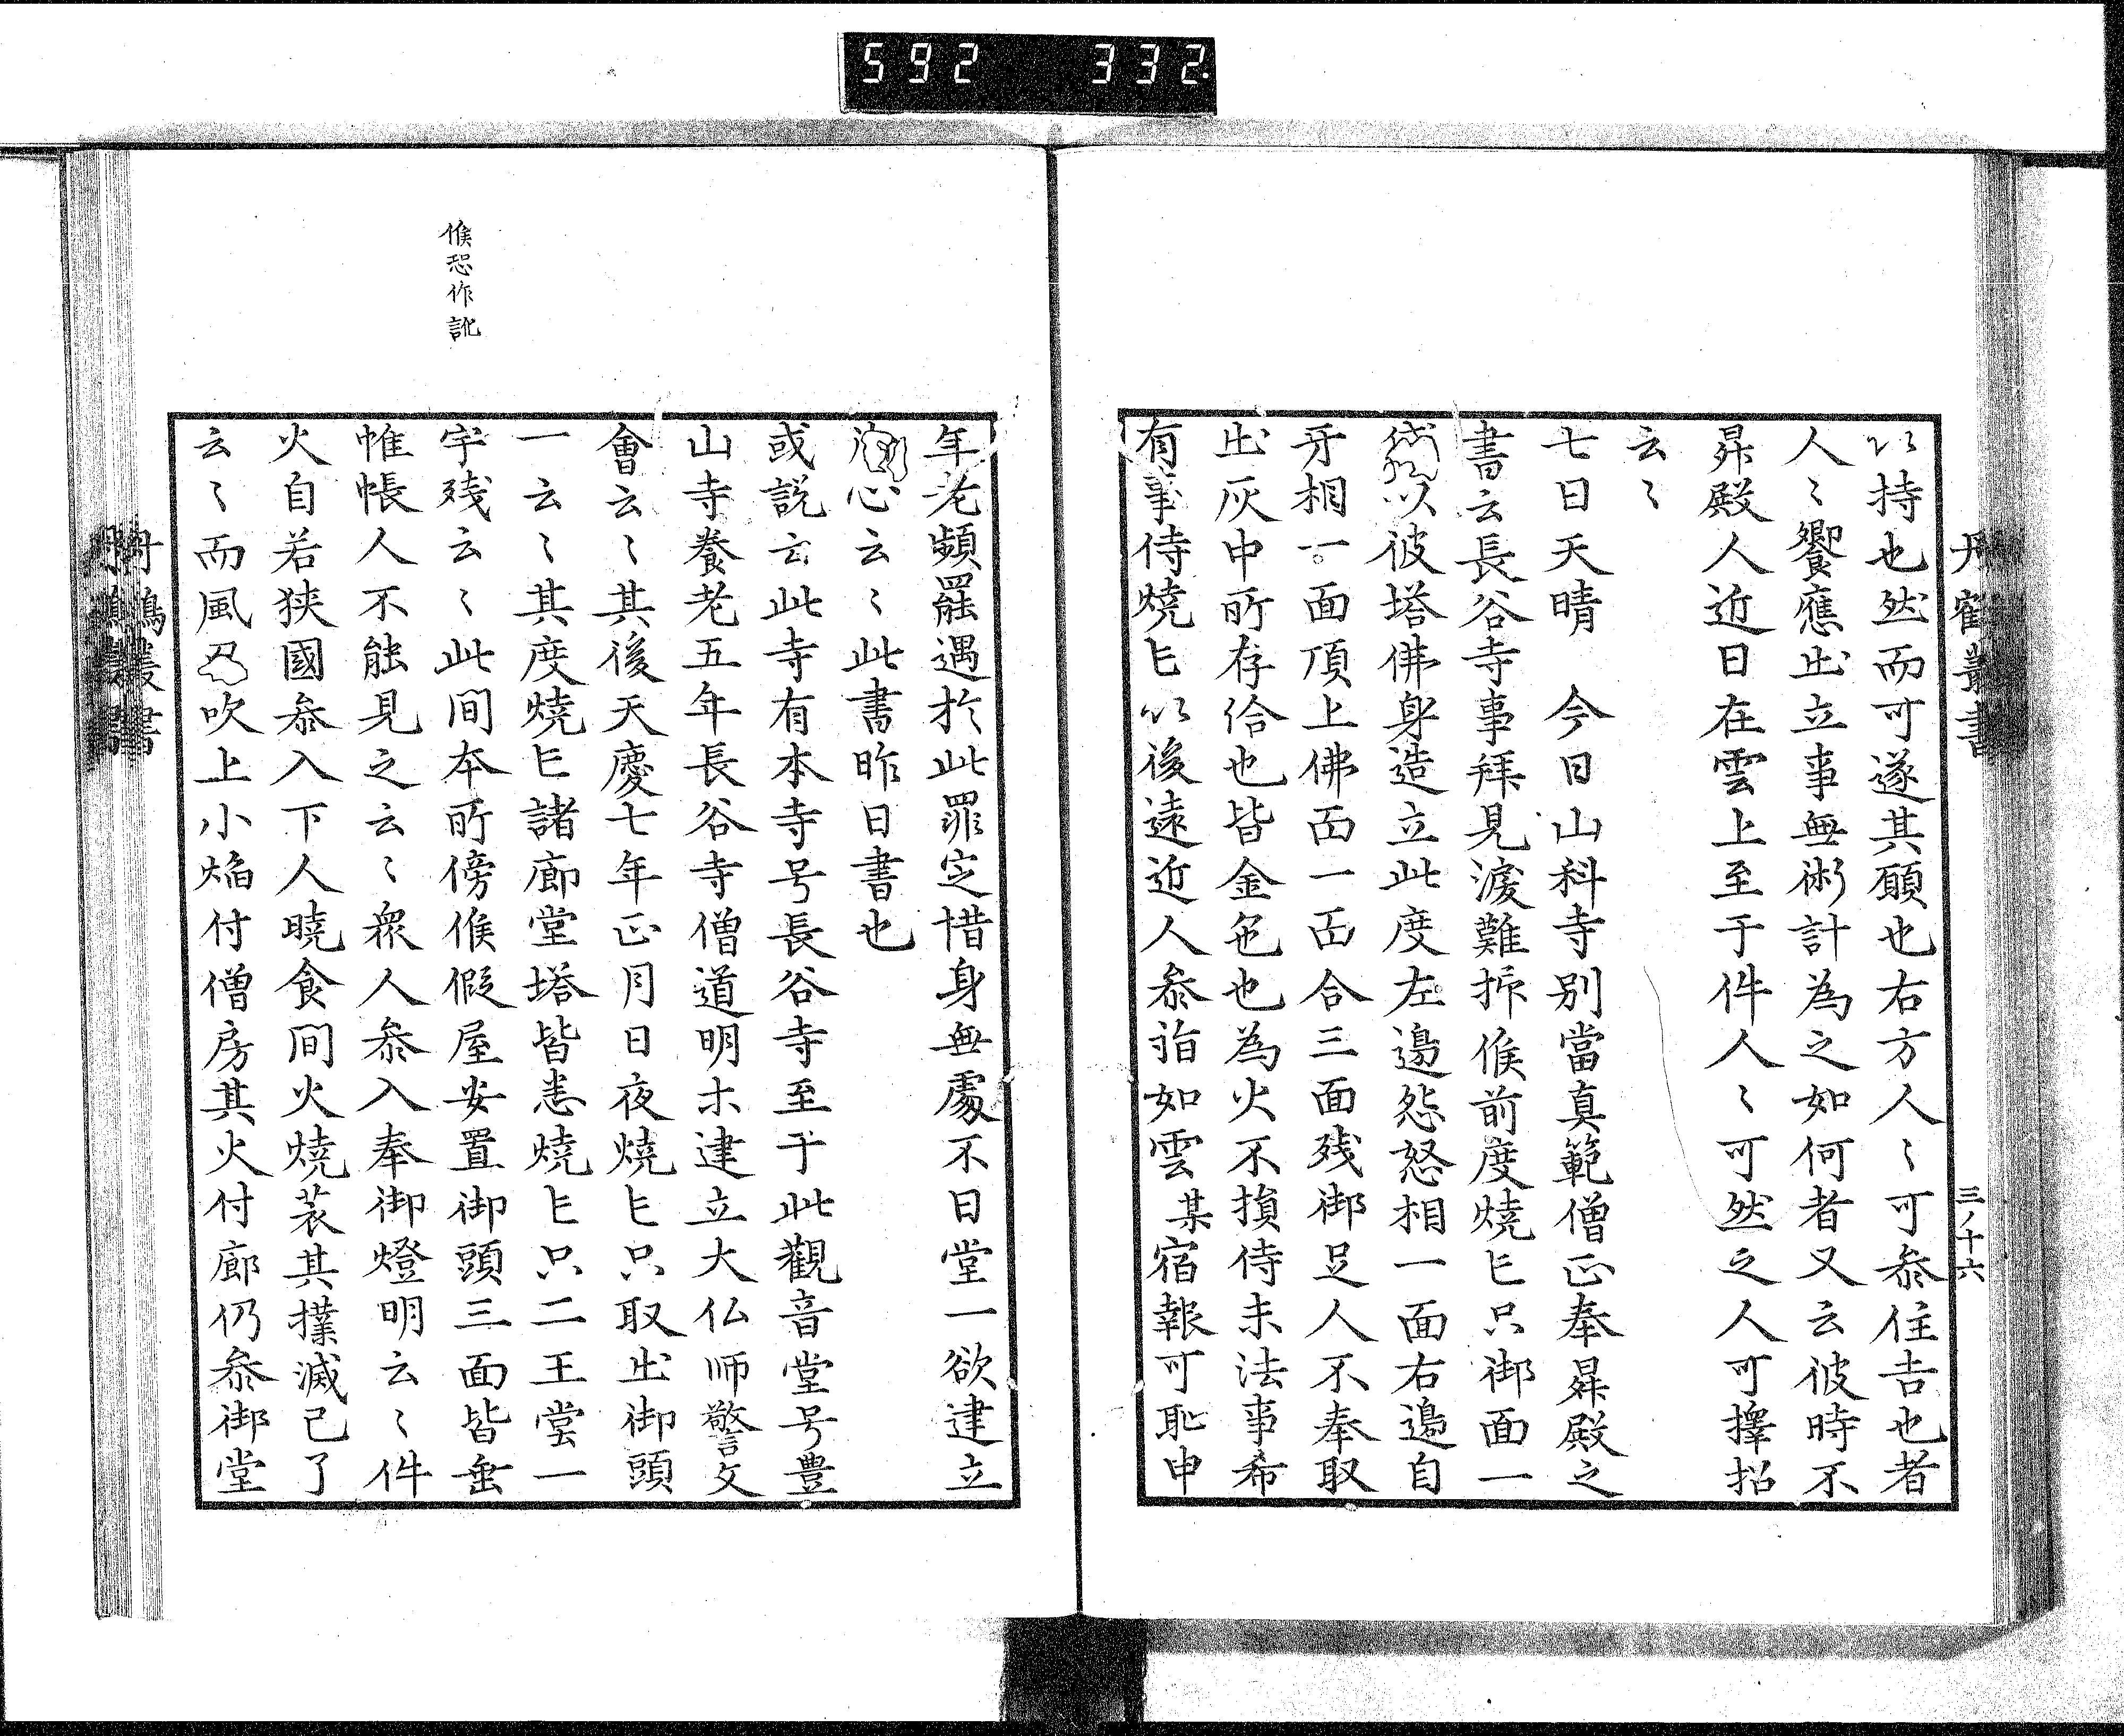 592 332
丹鶴叢書
三ノ十六
以持也然而可遂其願也右方人〻可叅住吉也者
人〻饗應出立事無術計為之如何者又云彼時不
昇殿人近日在雲上至于件人〻可然之人可擇招
云〻
七日天晴 今日山科寺別當真範僧正奉昇殿之
書云長谷寺事拜見淚難抑候前度燒亡只御面一
以彼塔佛身造立此度左邊忿怒相一面右邉自
牙相一面頂上佛面一面合三面残御足人不奉取
出灰中所存佁也皆金色也為火不損侍未法事希
有事侍燒亡以後遠近人叅詣如雲某宿報可恥申
年老頻羅遇扵此罪定惜身無處不日堂一欲建立
心云〻此書昨日書也
或説云此寺有本寺号長谷寺至于此觀音堂号豊
山寺養老五年長谷寺僧道明ホ建立大仏师警文
會云〻其後天慶七年正月日夜燒亡只取出御頭
一云〻其度燒亡諸廊堂塔皆悉燒亡只二王堂一
宇残云〻此间本所傍候假屋安置御頭三面皆垂
帷帳人不能見之云〻衆人叅入奉御燈明云〻件
火自若狭國叅入下人曉食间火燒菉其撲滅已了
云〻而風吹上小焔付僧房其火付廊仍叅御堂
候恐作訛
丹鶴叢書